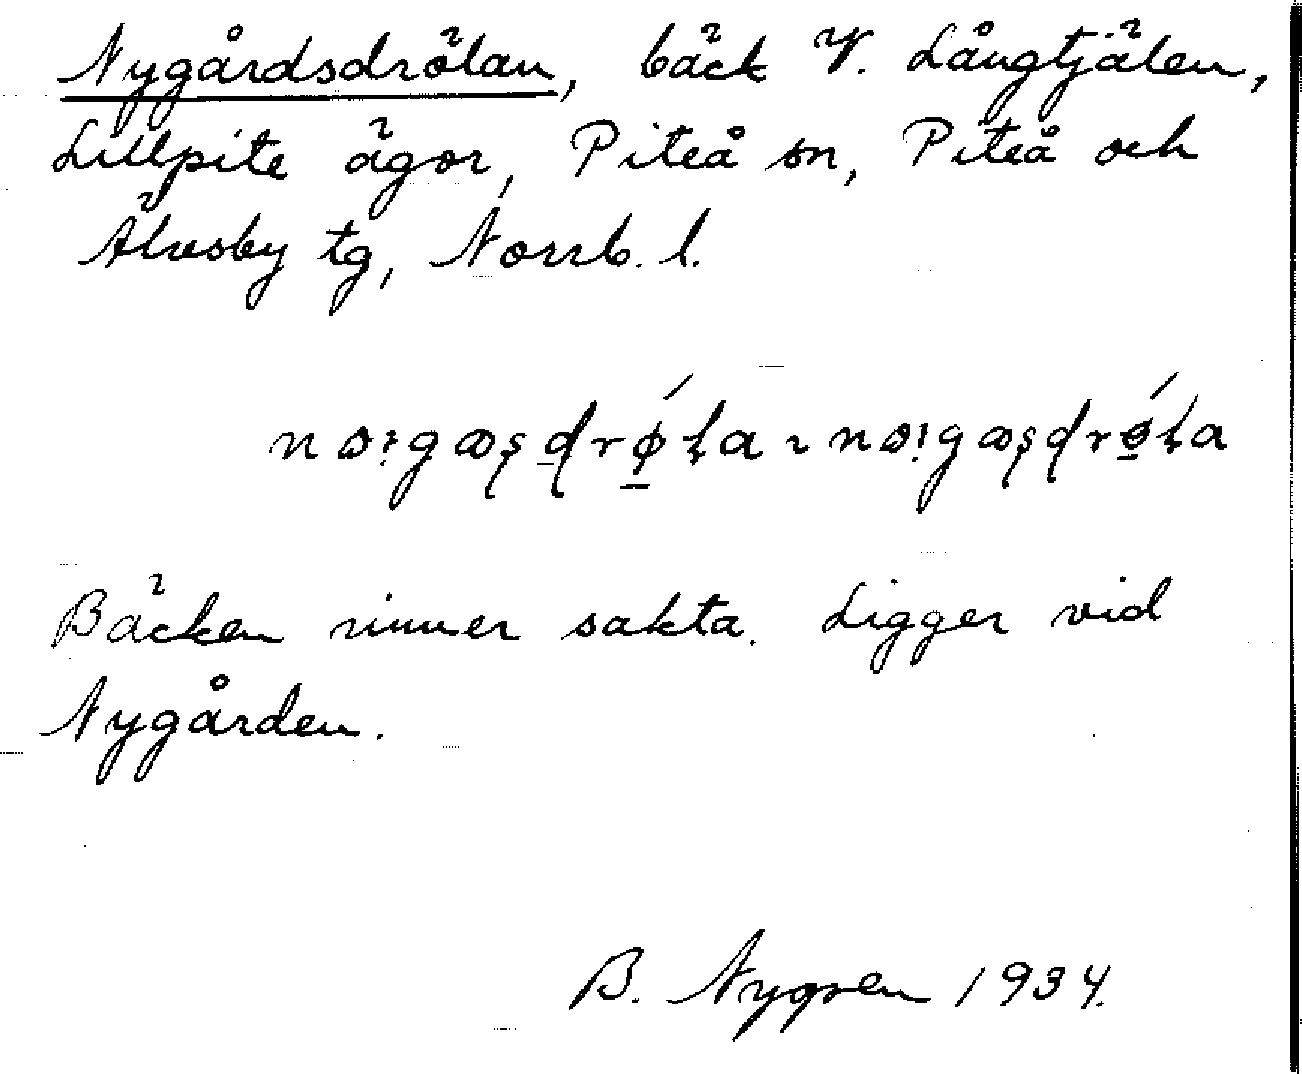 Nygårdsdrölan, bäck V. Långtjälen,
Lillpite ägor, Piteå sn, Piteå och
Älvsby tg, Norrb. l.
Bäcken rinner sakta. Ligger vid
Nygården.
B. Nygren 1934.